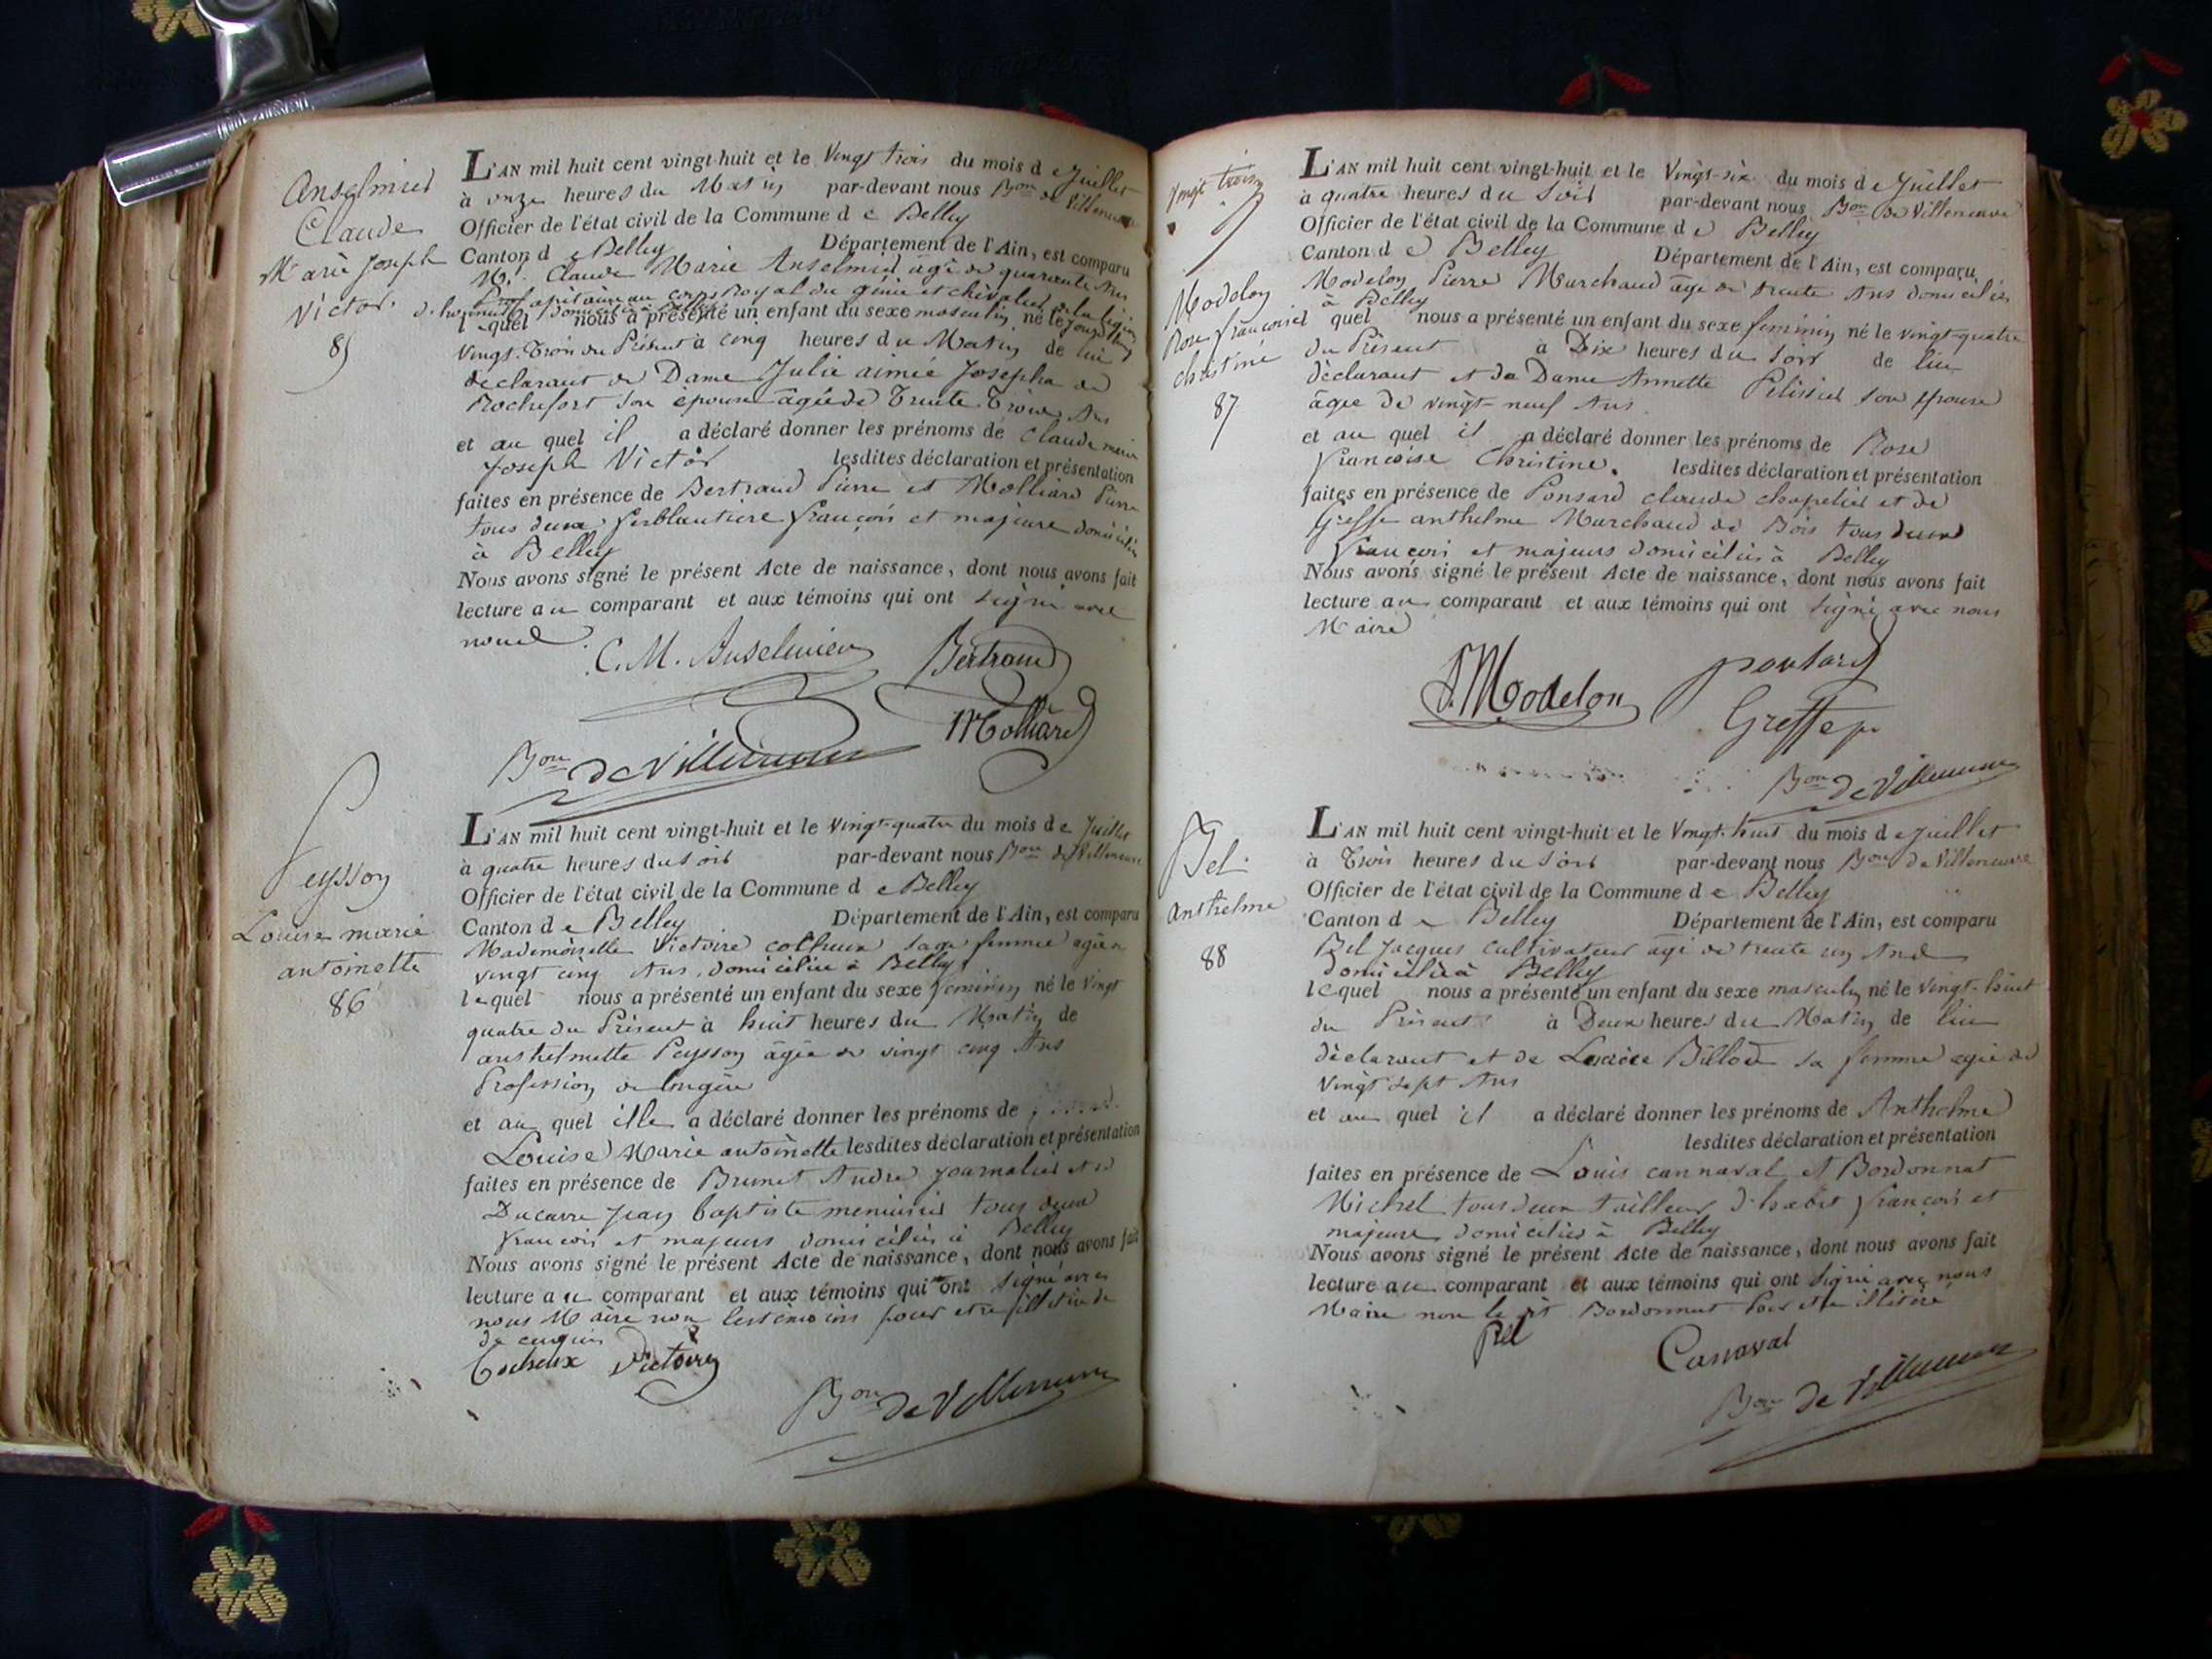 Anselmier
Claude
Marie Joseph
Victor.
85
L'AN mil huit cent vingt-huit et le Vingt trois du mois de Juillet
à onze heures du Matin par-devant nous Bon de Villeneuve
Officier de l'état civil de la Commune de Belley
Canton de Belley Département de l'Ain, est comparu
Mr. Claude Marie Anselmier âgé de quarante Ans
au corps Royal du génie et chevalier de la légion
d'honneur domicilié à Belley
lequel nous a présenté un enfant du sexe masculin né le jourd'hui
vingt-Trois du Présent à cinq heures du Matin de lui
déclarant et de Dame Julie aimée Josepha de
Rochefort son épouse âgée de Trente Trois Ans
et au quel il a déclaré donner les prénoms de Claude marie
Joseph Victor lesdites déclaration et présentation
faites en présence de Bertrand Pierre et Molliard Pierre
tous deux ferblantiers françois et majeurs domiciliés
à Belley
Nous avons signé le présent Acte de naissance, dont nous avons fait
lecture au comparant et aux témoins qui ont signé avec
nous.
C. M. Anselmier Bertrand
Molliard
Bon de Villeneuve
Peysson
Louise marie
antoinette
86
L'AN mil huit cent vingt-huit et le Vingt-quatre du mois de Juillet
à quatre heures du soir par-devant nous Bon de Villeneuve
Officier de l'état civil de la Commune de Belley
Canton de Belley Département de l'Ain, est comparu
Mademoiselle Victoire sage femme agée de
vingt cinq Ans, domiciliée à Belley
lequel nous a présenté un enfant du sexe féminin né le Vingt
quatre du Présent à huit heures du Matin de
anthelmette Peysson âgée de vingt cinq Ans
Profession de lingère
et au quel elle a déclaré donner les prénoms de
Louise Marie antoinette lesdites déclaration et présentation
faites en présence de Brunet André journalier et de
Ducarre Jean baptiste menuisier tous deux
françois et majeurs domiciliés à Belley
Nous avons signé le présent Acte de naissance, dont nous avons fait
lecture au comparant et aux témoins qui ont signé avec
nous Maire non les témoins pour etre illitéré de
de enquis
Victoire
Bon de Villeneuve
Vingt trois
Modelon
Rose françoise
christine
87
L'AN mil huit cent vingt-huit et le Vingt-six du mois de Juillet
à quatre heures du Soir par-devant nous Bon de Villeneuve
Officier de l'état civil de la Commune de Belley
Canton de Belley Département de l'Ain, est comparu
Modelon Pierre Marchand âgé de trente Ans domicilié
à Belley
quel nous a présenté un enfant du sexe féminin né le vingt-quatre
du Présent à Dix heures du soir de lui
déclarant et de Dame Annette Pelissier son épouse
âgée de vingt-neuf Ans.
et au quel il a déclaré donner les prénoms de Rose
françoise Christine. lesdites déclaration et présentation
faites en présence de Ponsard claude chapelier et de
Greffe anthelme Marchand de Bois tous deux
françois et majeurs domiciliés à Belley
Nous avons signé le présent Acte de naissance, dont nous avons fait
lecture au comparant et aux témoins qui ont signé avec nous
Maire
P. Modelon ponsard
Greffe
Bon de Villeneuve
Bel
anthelme
88
L'AN mil huit cent vingt-huit et le Vingt-huit du mois de Juillet
à Trois heures du soir par-devant nous Bon de Villeneuve
Officier de l'état civil de la Commune de Belley
Canton de Belley Département de l'Ain, est comparu
Bel Jacques cultivateur âgé de trente un Ans
domicilié à Belley
lequel nous a présenté un enfant du sexe masculin né le vingt-huit
du Présent à Deux heures du Matin de lui
déclarant et de Lucrèce Billod sa femme agée de
vingt sept Ans
et au quel il a déclaré donner les prénoms de Anthelme
lesdites déclaration et présentation
faites en présence de Louis cannaval et Bordonnat
Michel tous deux tailleurs d'habit françois et
majeurs domiciliés à Belley
Nous avons signé le présent Acte de naissance, dont nous avons fait
lecture au comparant et aux témoins qui ont signé avec nous
Maire non le dt Bordonnat Pour etre illitéré
Bel Canaval
Bon de Villeneuve